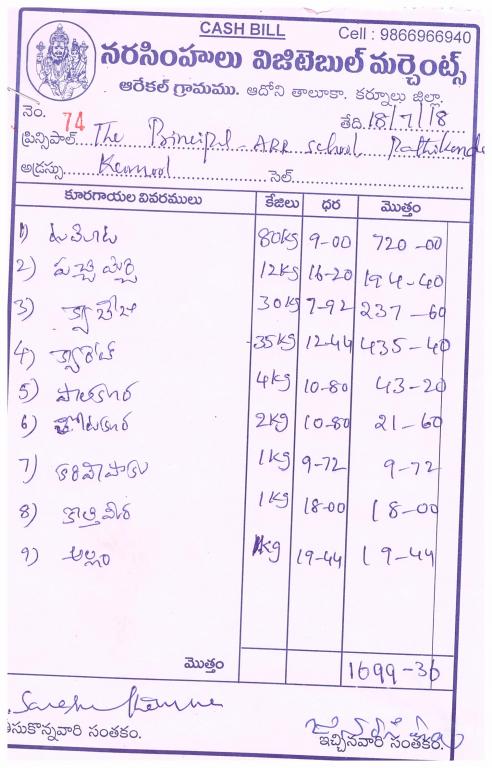 CASH BILL
Cell : 9866966940
నరసింహులు విజిటెబుల్ మర్చెంట్స్
ఆరేకల్ గ్రామము. ఆదోని తాలూకా. కర్నూలు జిల్లా.
నెం. 74 తేది. 18/7/18
ప్రిన్సిపాల్ The Principal ARR School
అడ్రస్సు Kurnool సెల్
కూరగాయల వివరములు కేజిలు ధర మొత్తం
1) టమోట 80kg 9-00 720-00
2) పచ్చిమిర్చి 12kg 16-20 194-40
3) క్యాబేజి 30kg 7-92 237-60
4) క్యారెట్ 35kg 12-44 435-40
5) పాలకూర 4kg 10-80 43-20
6) తోటకూర 2kg 10-80 21-60
7) కరివేపాకు 1kg 9-72 9-72
8) కొత్తిమీర 1kg 18-00 18-00
9) అల్లం 1kg 19-44 19-44
మొత్తం 1699-36
తీసుకొన్నవారి సంతకం. ఇచ్చినవారి సంతకం.